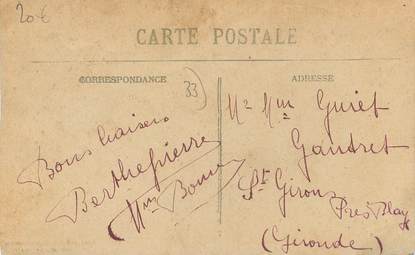 20 €
CARTE POSTALE
CORRESPONDANCE
ADRESSE
33
Bons baisers
Berthepierre
Mr Mme Guief
Gaudret
St Girons
Près Blaye
(Gironde)